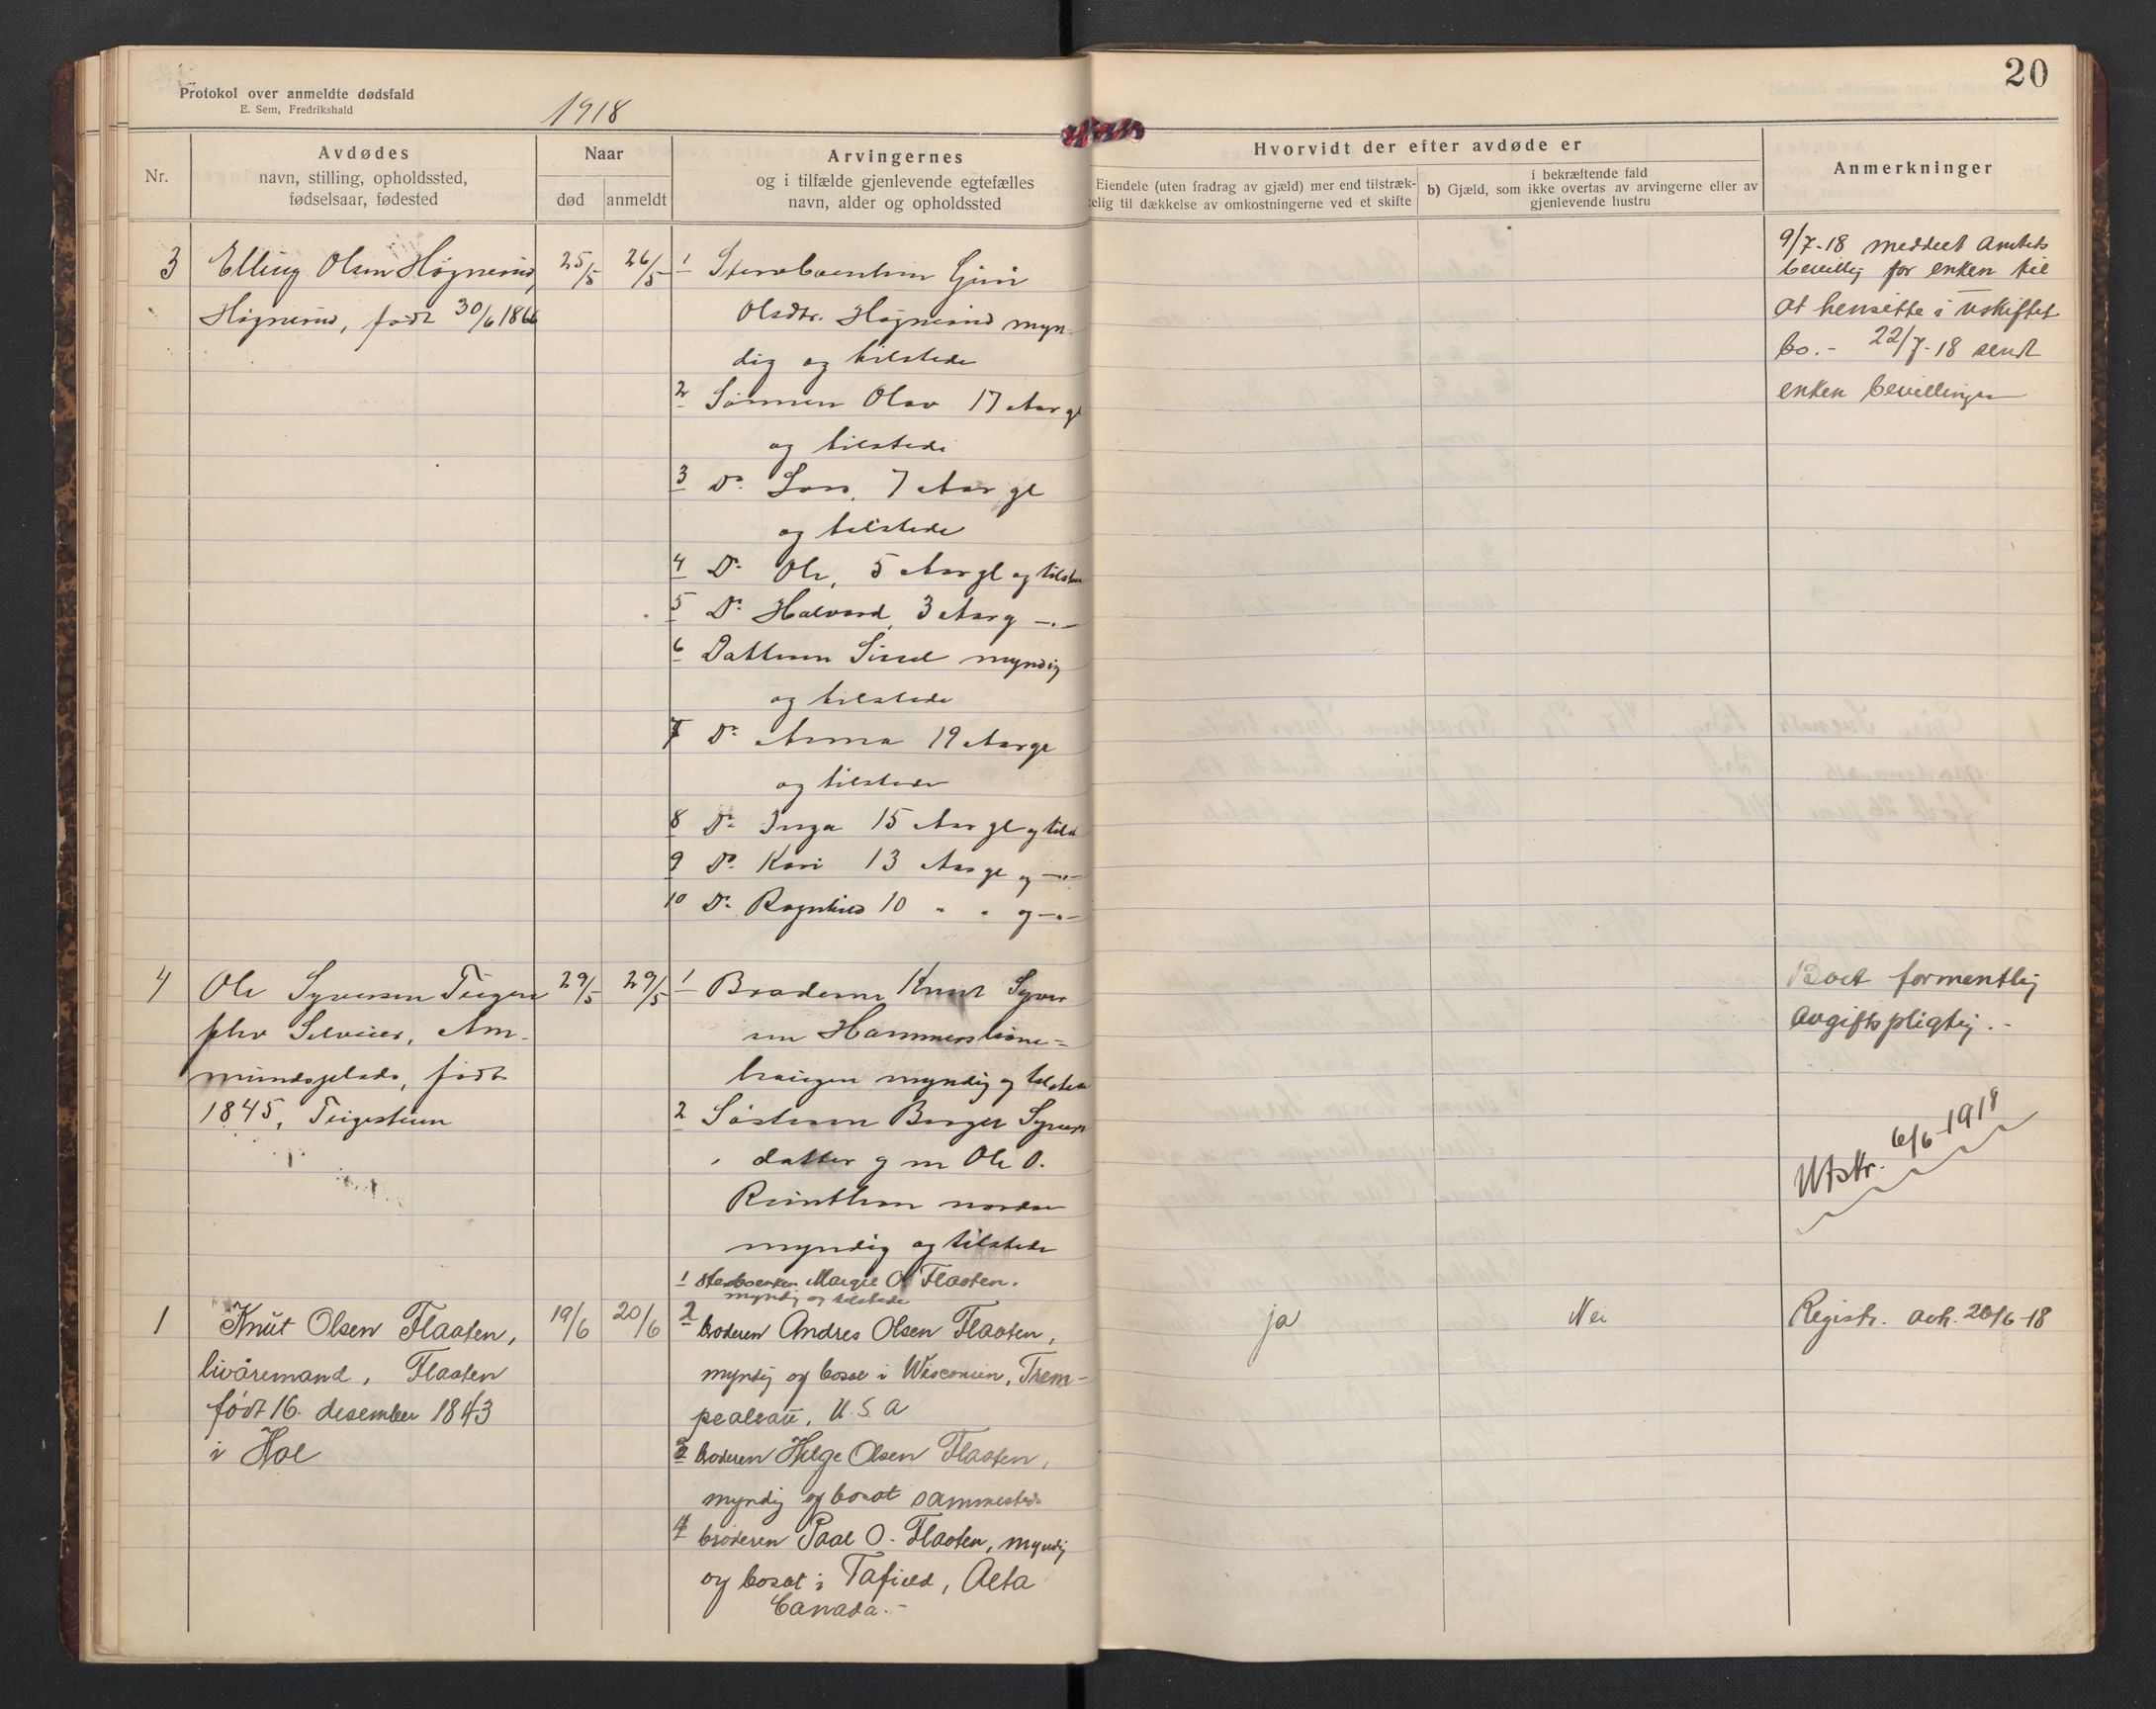 Protokol over anmeldte dødsfald
E. Sem, Fredrikshald
1918
20
Nr.
Avdødes
navn, stilling, opholdssted,
fødselsaar, fødested
Naar
død
anmeldt
Arvingernes
og i tilfælde gjenlevende egtefælles
navn, alder og opholdssted
Hvorvidt der efter avdøde er
Eiendele (uten fradrag av gjæld) mer end tilstræk-
kelig til dækkelse av omkostningerne ved et skifte
i bekræftende fald
b) Gjæld, som ikke overtas av arvingerne eller av
gjenlevende hustru
Anmerkninger
3
Elling Olsen Høgnerud,
Høgnerud, født 30/6 1866
25/5
26/5
1 Guri
Olsdtr. Høgnerud myn-
dig og tilstede
2 Sønnen Olav 17 Aar gl
og tilstede
3 Do. Lars, 7 Aar gl
og tilstede
4 Do. Ole, 5 Aar gl og tilstede
5 Do. Halvard, 3 Aar g —"—
6 Datteren Sissel myndig
og tilstede
7 Do. Anna 19 Aar gl
og tilstede
8 Do. Inga 15 Aar gl og tilst
9 Do. Kari 13 Aar gl og —"—
10 Do. Ragnhild 10 " " og —"—
9/7-18 meddelt Amtets
bevillig for enken til
at hensitte i uskiftet
bo.- 22/7-18 sendt
enken bevillingen
4
Ole Syversen Teigen
født
1845, Teigestuen
29/5
29/5
1 Broderen Knut Syver
sen
haugen myndig og tilstede
2 Søsteren Birgit Syvers
datter g m Ole O.
nordre
myndig og tilstede
Boet formentlig
avgiftspligtig.-
Utskr. 6/6-1918
1
Knut Olsen Flaaten,
livøremand, Flaaten
født 16. desember 1843
i Hol
19/6
20/6
1 Sterboenken Margit O Flaaten.
myndig og tilstede
2 broderen Andres Olsen Flaaten,
myndig og bosat i Wisconsin, Trem-
pealeau, U.S.A
3 broderen Helge Olsen Flaaten,
myndig og bosat sammesteds
4 broderen Paal O. Flaaten, myndig
og bosat i Tafield, Alta
Canada.-
ja
Nei
Registr. avh. 20/6-18